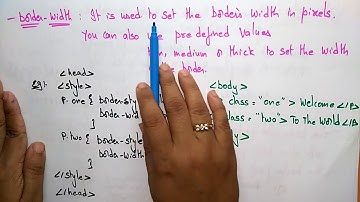 - border-width : It is used to set the border's width in pixels.
You can also use pre defined values
thin, medium or thick to set the width
the border.
Eg:
<head>
<style>
p.one { border-style
border-wid
}
p.two { border-style
border-width
}
</style>
</head>
<body>
class="one"> Welcome </p>
class="two"> To the World </p>